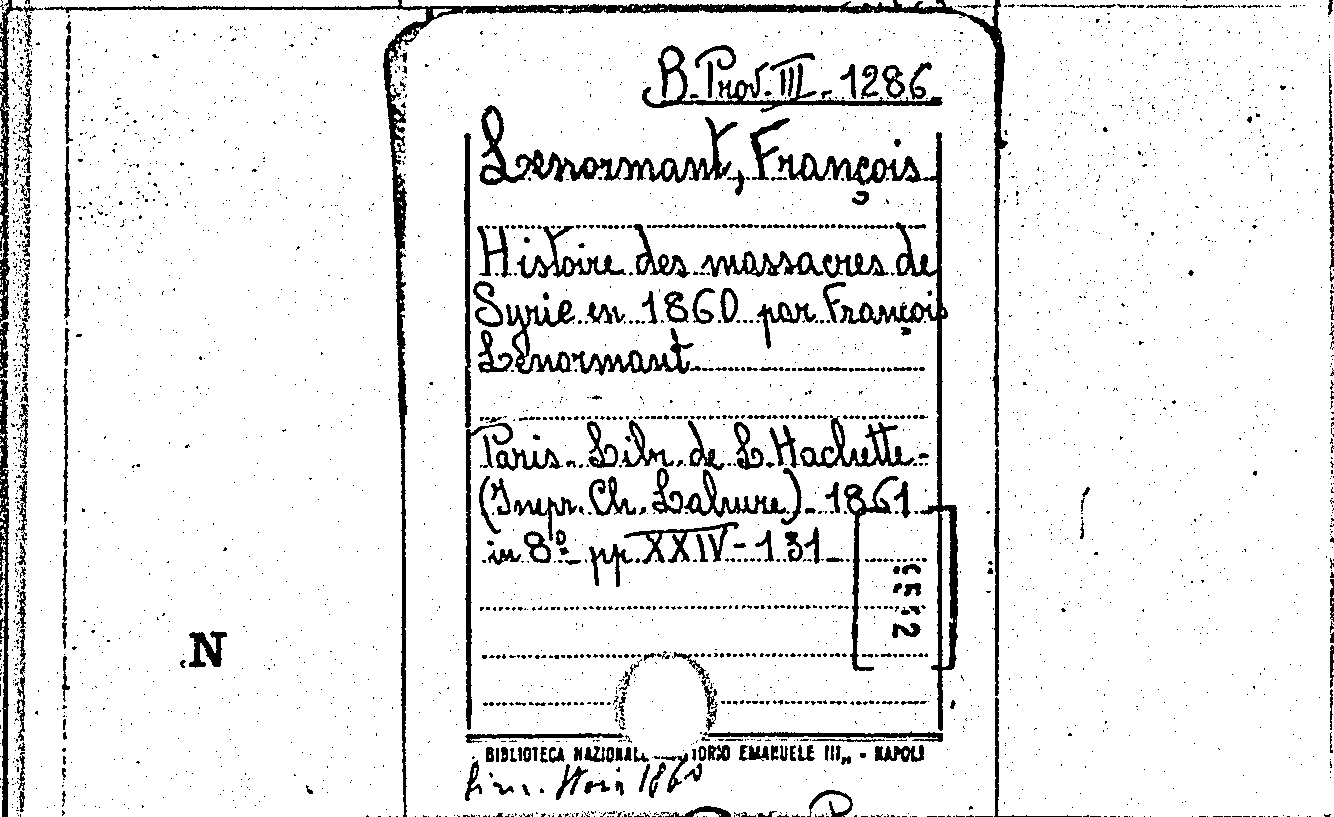 B. Prov. III. 1286
Lenormant, François
Histoire des massacres de
Syrie en 1860 par François
Lenormant
Paris. Libr. de L. Hachette -
(Impr. Ch. Lahure). 1861
in 8º pp XXIV - 131
N
BIBLIOTECA NAZIONAL TORIO EMANUELE III„ - NAPOLI
1860